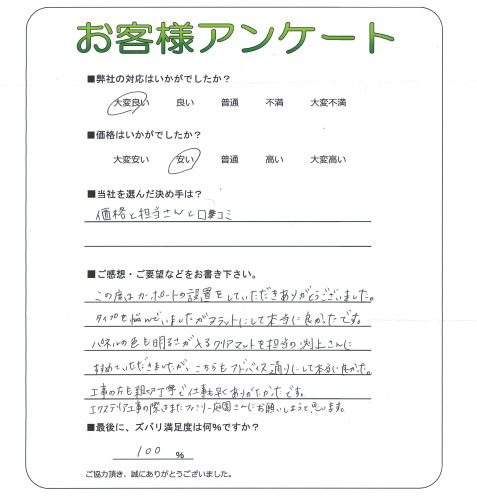 お客様アンケート
■弊社の対応はいかがでしたか？
大変良い 良い 普通 不満 大変不満
■価格はいかがでしたか？
大変安い 安い 普通 高い 大変高い
■当社を選んだ決め手は？
価格と担当さんと口コミ
■ご感想・ご要望などをお書き下さい。
この度はカーポートの設置をしていただきありがとうございました。
タイプを悩んでいましたがフラットにして本当に良かったです。
パネルの色も明るさが入るクリアマットを担当の渕上さんに
すすめていただきましたが、こちらもアドバイス通りにして本当に良かった。
工事の方も親切丁寧で仕事も早くありがたかったです。
エクステリア工事の際はまたファミリー庭園さんにお願いしようと思います。
■最後に、ズバリ満足度は何%ですか？
100 %
ご協力頂き、誠にありがとうございました。